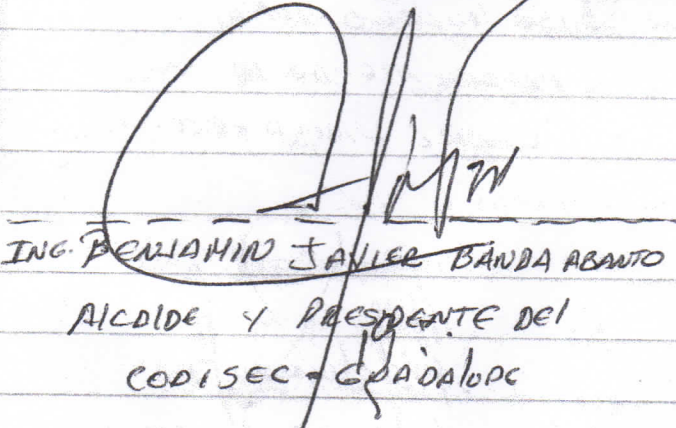 ING. BENJAMIN JAVIER BANDA ABANTO
AlCAlDE Y PRESIDENTE DEl
CODISEC - GUADAlUPE